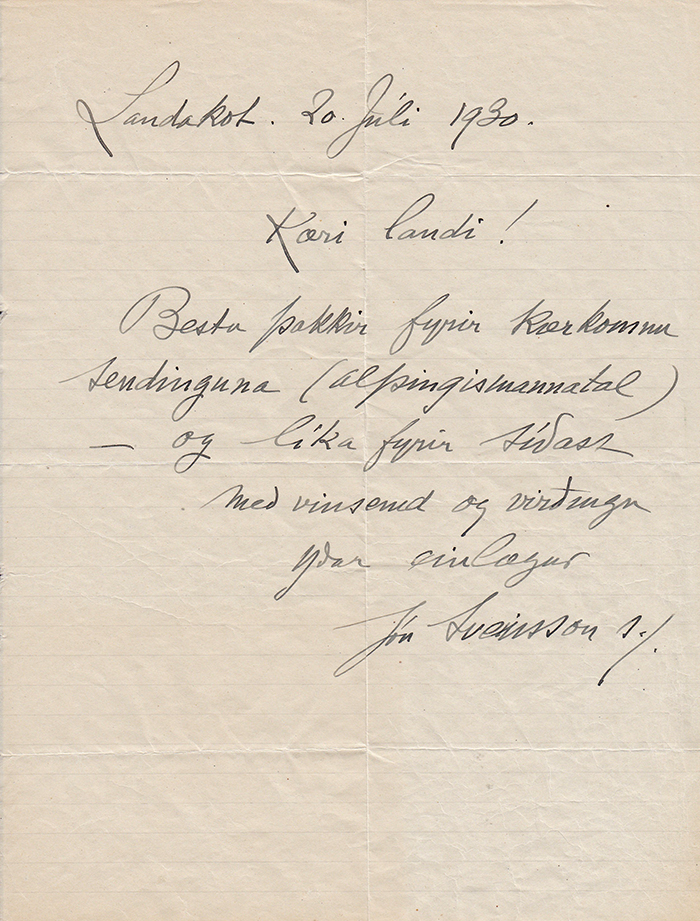 Landakot. 20. Júli 1930.
Kæri landi!
Bestu þakkir fyrir kærkomnu
sendinguna (alþingismannatal)
— og líka fyrir síðast
með vinsemd og virðingu
yðar einlægur
Jón Sveinsson s.j.